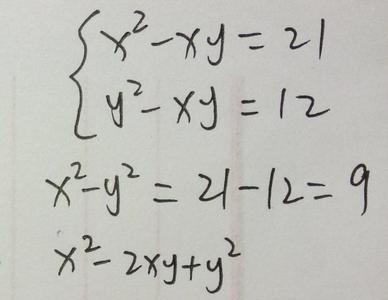 x²-xy=21
y²-xy=12
x²-y²=21-12=9
x²-2xy+y²